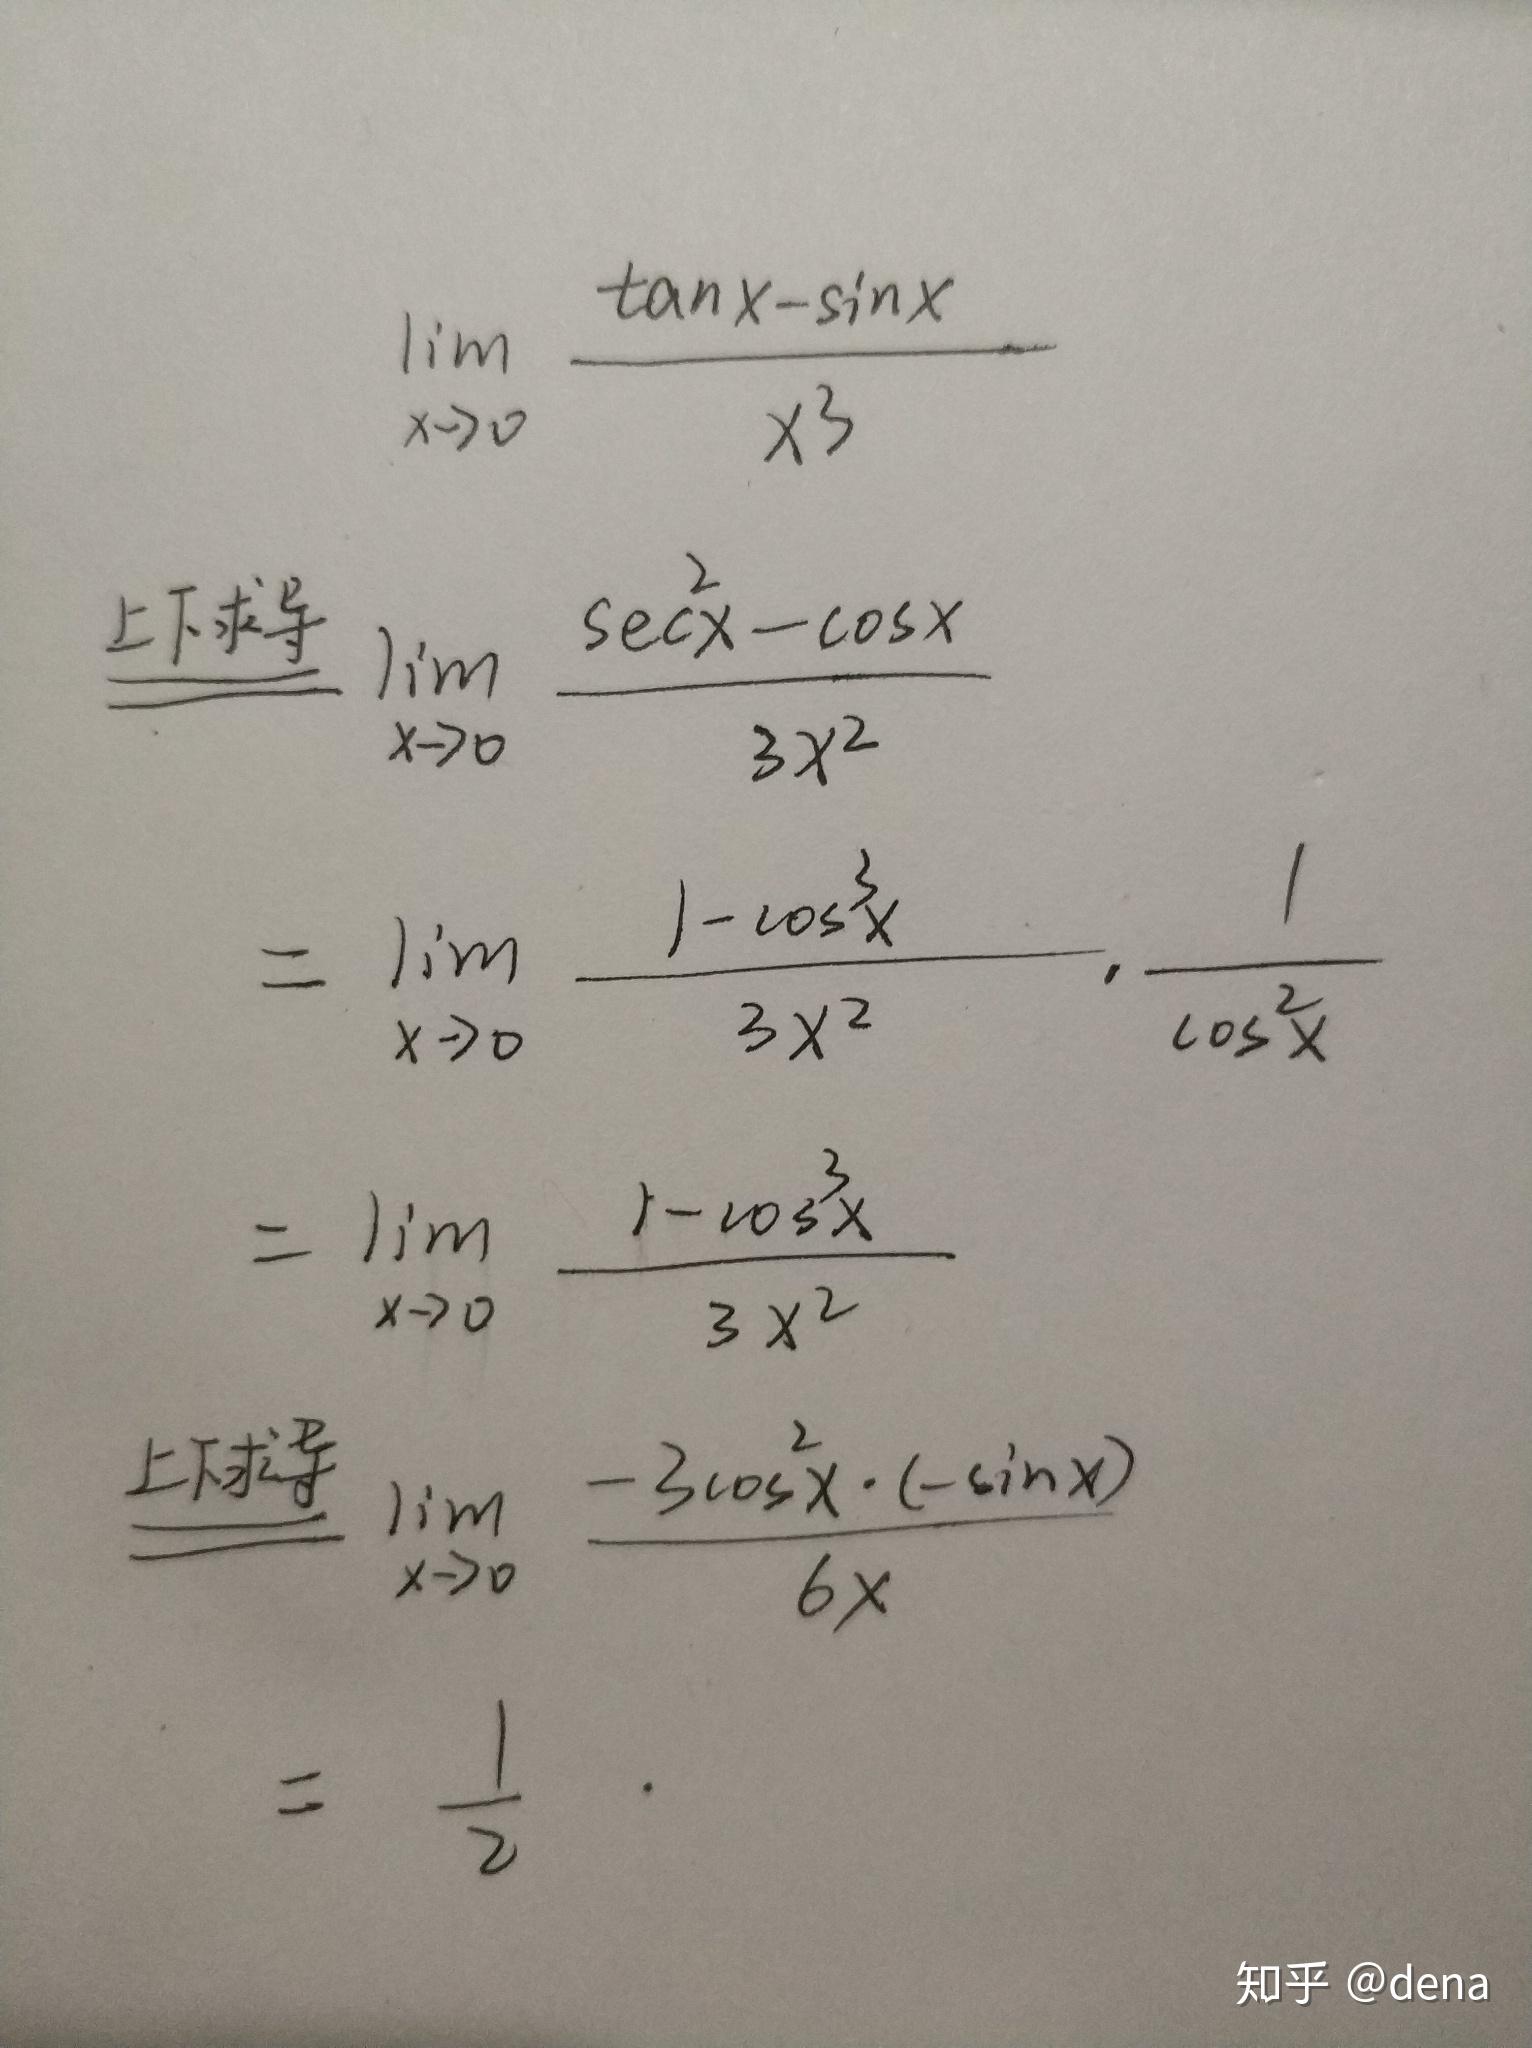 lim x→0 (tanx-sinx)/x³
上下求导 lim x→0 (sec²x-cosx)/3x²
= lim x→0 (1-cos³x)/3x² · 1/cos²x
= lim x→0 (1-cos³x)/3x²
上下求导 lim x→0 (-3cos²x·(-sinx))/6x
= 1/2 .
知乎 @dena